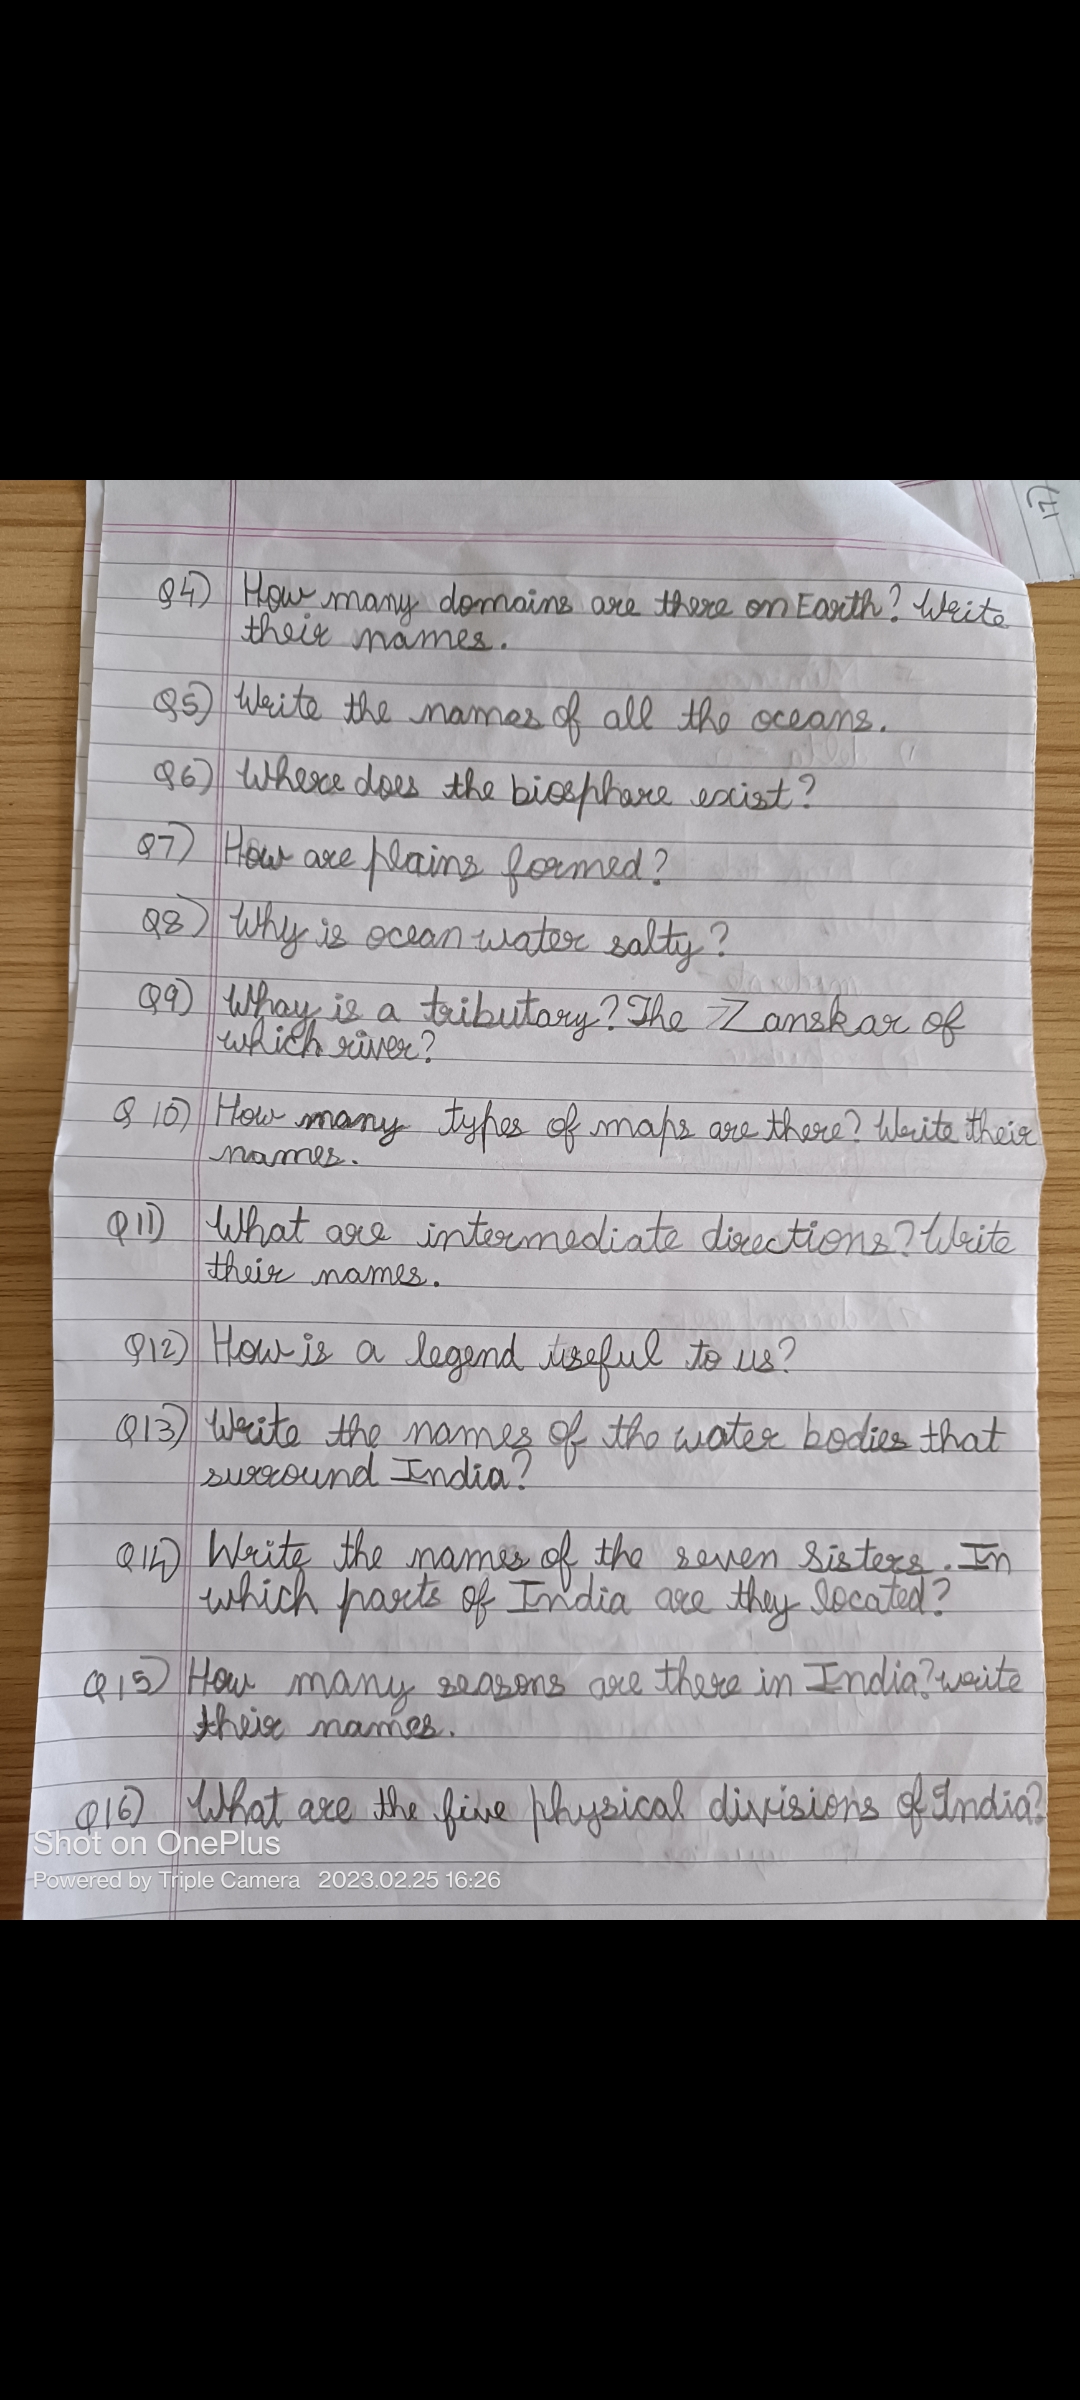 Q4) How many domains are there on Earth? Write
their names.
Q5) Write the names of all the oceans.
Q6) Where does the biosphare exist?
Q7) How are plains formed?
Q8) Why is ocean water salty?
Q9) Whay is a tributary? The Zanskar of
which river?
Q 10) How many types of maps are there? Write their
names.
Q11) What are intermediate directions? Write
their names.
Q12) How is a legend useful to us?
Q13) Write the names of the water bodies that
surround India?
Q14) Write the names of the seven sisters. In
which parts of India are they located?
Q15) How many seasons are there in India? write
their names.
Q16) What are the five physical divisions of India?
Shot on OnePlus
Powered by Triple Camera 2023.02.25 16:26